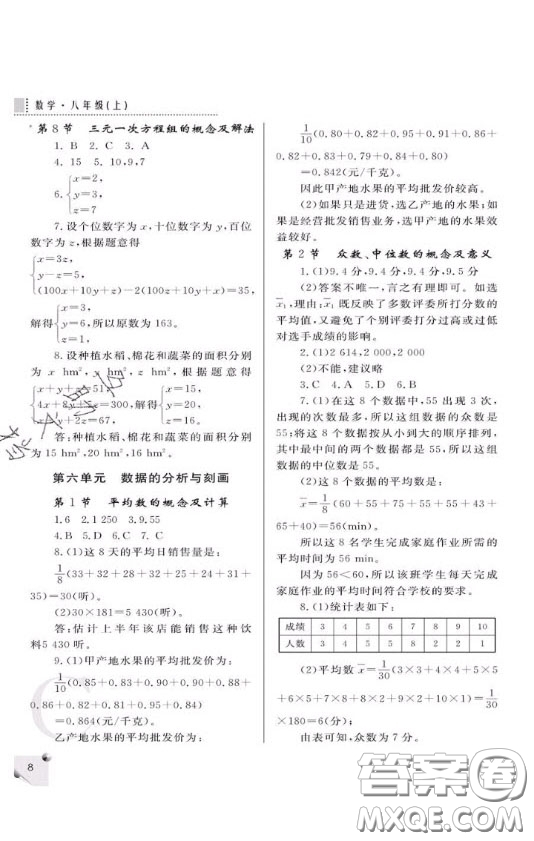 数学·八年级(上)
第8节 三元一次方程组的概念及解法
1. B 2. C 3. A
4. 15 5. 10,9,7
6. {x=2,
y=3,
z=7
7. 设个位数字为 x,十位数字为 y,百位
数字为 z,根据题意得
{x=3z,
y-z=5,
(100x+10y+z)-2(100z+10y+x)=35,
解得{x=3,
y=6,
z=1,所以原数为 163.
8. 设种植水稻、棉花和蔬菜的面积分别
为 x hm², y hm², z hm²,根据题意得
{x+y+z=51,
4x+8y+5z=300,
x+y+2z=67,
解得{x=15,
y=20,
z=16.
答:种植水稻、棉花和蔬菜的面积分别
为 15 hm²,20 hm²,16 hm².
第六单元 数据的分析与刻画
第1节 平均数的概念及计算
1. 6 2. 1 250 3. 9.55
4. B 5. D 6. C 7. C
8. (1)这 8 天的平均日销售量是:
1/8(33+32+28+32+25+24+31+
35)=30(听).
(2)30×181=5 430(听).
答:估计上半年该店能销售这种饮
料5 430 听.
9. (1)甲产地水果的平均批发价为:
1/10(0.85+0.83+0.90+0.90+0.88+
0.87+0.81+0.82+0.94+0.84)
=0.864(元/千克)
乙产地水果的平均批发价为:
1/10(0.80+0.82+0.95+0.91+0.86+
0.82+0.83+0.79+0.84+0.80)
=0.842(元/千克)
因此甲产地水果的平均批发价较高.
(2)如果只是进货,选乙产地的水果;如
果是经营批发销售业务,选甲产地的水果效
益较好.
第2节 众数、中位数的概念及意义
1. (1)9.4 分,9.4 分,9.4 分,9.5 分
(2)答案不唯一,言之有理即可. 如选
x̄₁,理由:x̄₁ 既反映了多数评委所打分数的
平均值,又避免了个别评委打分过高或过低
对选手成绩的影响.
2. (1)2 614,2 000,2 000
(2)不能,建议略
3. C 4. A 5. D 6. B
7. (1)在这 8 个数据中,55 出现 3 次,
出现的次数最多,所以这组数据的众数是
55;将这 8 个数据按从小到大的顺序排列,
其中最中间的两个数据都是 55,所以这组
数据的中位数是 55.
(2)这 8 个数据的平均数是
x̄=1/8(60+55+75+55+55+43+
65+40)=56(min).
所以这 8 名学生完成家庭作业所需的
平均时间为 56 min.
因为 56<60,所以该班学生每天完成
家庭作业的平均时间符合学校的要求.
8. (1)统计表如下:
成绩 3 4 5 6 7 8 9 10
人数 3 4 5 5 6 4 2 1
(2)平均数 x̄=1/30(3×3+4×4+5×5
+6×5+7×6+8×4+9×2+10×1)=1/30
×180=6(分);
由表可知,众数为 7 分.
8
答案卷
MXQE.COM